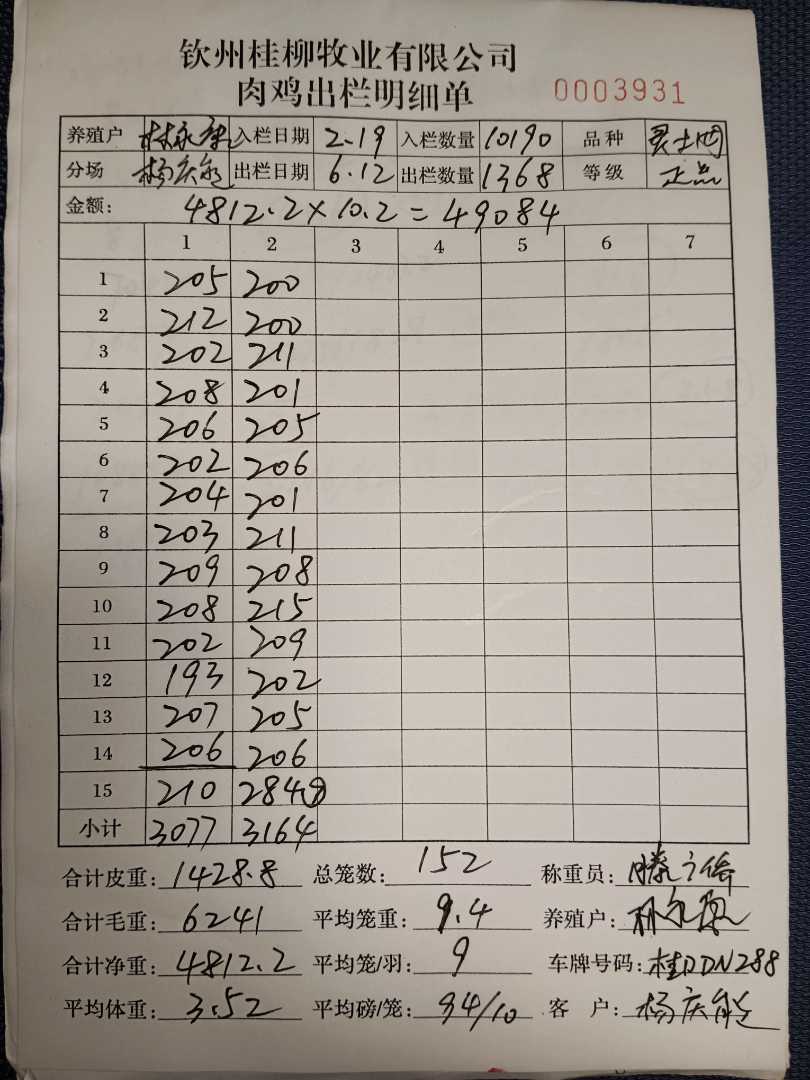 钦州桂柳牧业有限公司
肉鸡出栏明细单 0003931
养殖户 入栏日期 2.19 入栏数量 10190 品种
分场 杨庆能 出栏日期 6.12 出栏数量 1368 等级 正品
金额: 4812.2×10.2=49084
1 2 3 4 5 6 7
1 205 200
2 212 200
3 202 211
4 208 201
5 206 205
6 202 206
7 204 201
8 203 211
9 209 208
10 208 215
11 202 209
12 193 202
13 207 205
14 206 206
15 210 284⑨
小计 3077 3164
合计皮重: 1428.8 总笼数: 152 称重员:
合计毛重: 6241 平均笼重: 9.4 养殖户:
合计净重: 4812.2 平均笼/羽: 9 车牌号码: 桂DDN288
平均体重: 3.52 平均磅/笼: 94/10 客 户: 杨庆能